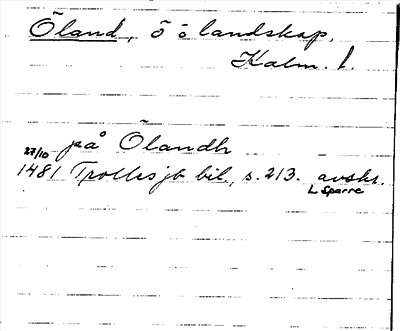 Öland, ö o landskap.
Kalm. l.
på Ölandh
27/10
1481 Trolles jb bil., s. 213. avskr.
L Sparre